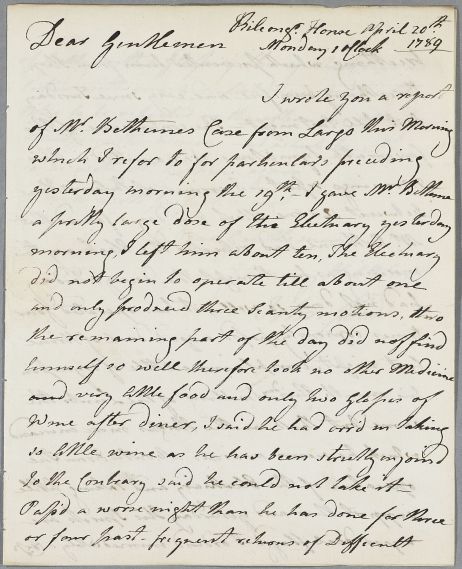 Kilcongr. House April 20th
Monday 1 oClock 1789
Dear Gentlemen
I wrote you a report
of Mr. Bethunes Case from Largo this Morning
which I refer to for particulars preceding
yesterday morning the 19th, I gave Mr. Bethune
a pritty large dose of the Electuary yesterday
morning, I left him about ten, The Electuary
did not begin to operate till about one
and only produced three Scanty motions, thro
the remaining part of the day did not find
himself so well therefore took no other Medicine
and very little food and only two glasses of
Wine after diner, I said he had err'd in taking
so little wine as he has been strictly injoind
to the Contrary said he could not take it
Pass'd a worse night than he has done for three
or four past - frequent returns of Difficult